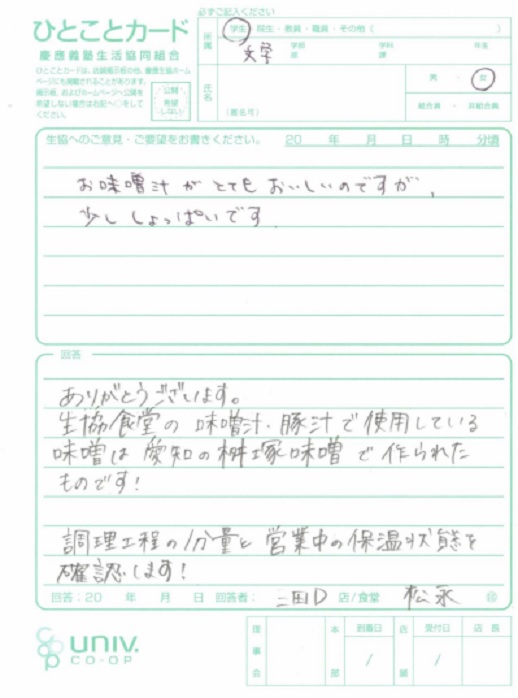 必ずご記入ください
ひとことカード
慶應義塾生活協同組合
ひとことカードは、店舗掲示板の他、慶應生協ホーム
ページにも掲載されることがあります。
掲示板、およびホームページへ公開を
希望しない場合は右記へ○をして
ください。
公開
希望
しない
所属
学生 院生・教員・職員・その他（ ）
文学 学部 学科 年生
部 課
氏名
（匿名可）
男・女
組合員・非組合員
生協へのご意見・ご要望をお書きください。 20 年 月 日 時 分頃
お味噌汁がとてもおいしいのですが、
少ししょっぱいです
回答
ありがとうございます。
生協食堂の味噌汁・豚汁で使用している
味噌は愛知の桝塚味噌で作られた
ものです!
調理工程の分量と営業中の保温状態を
確認します!
回答:20 年 月 日 回答者: 三田D 店/食堂 松永 ㊞
UNIV.
CO-OP
理事会
本部
到着日
/
店舗
受付日
/
店長